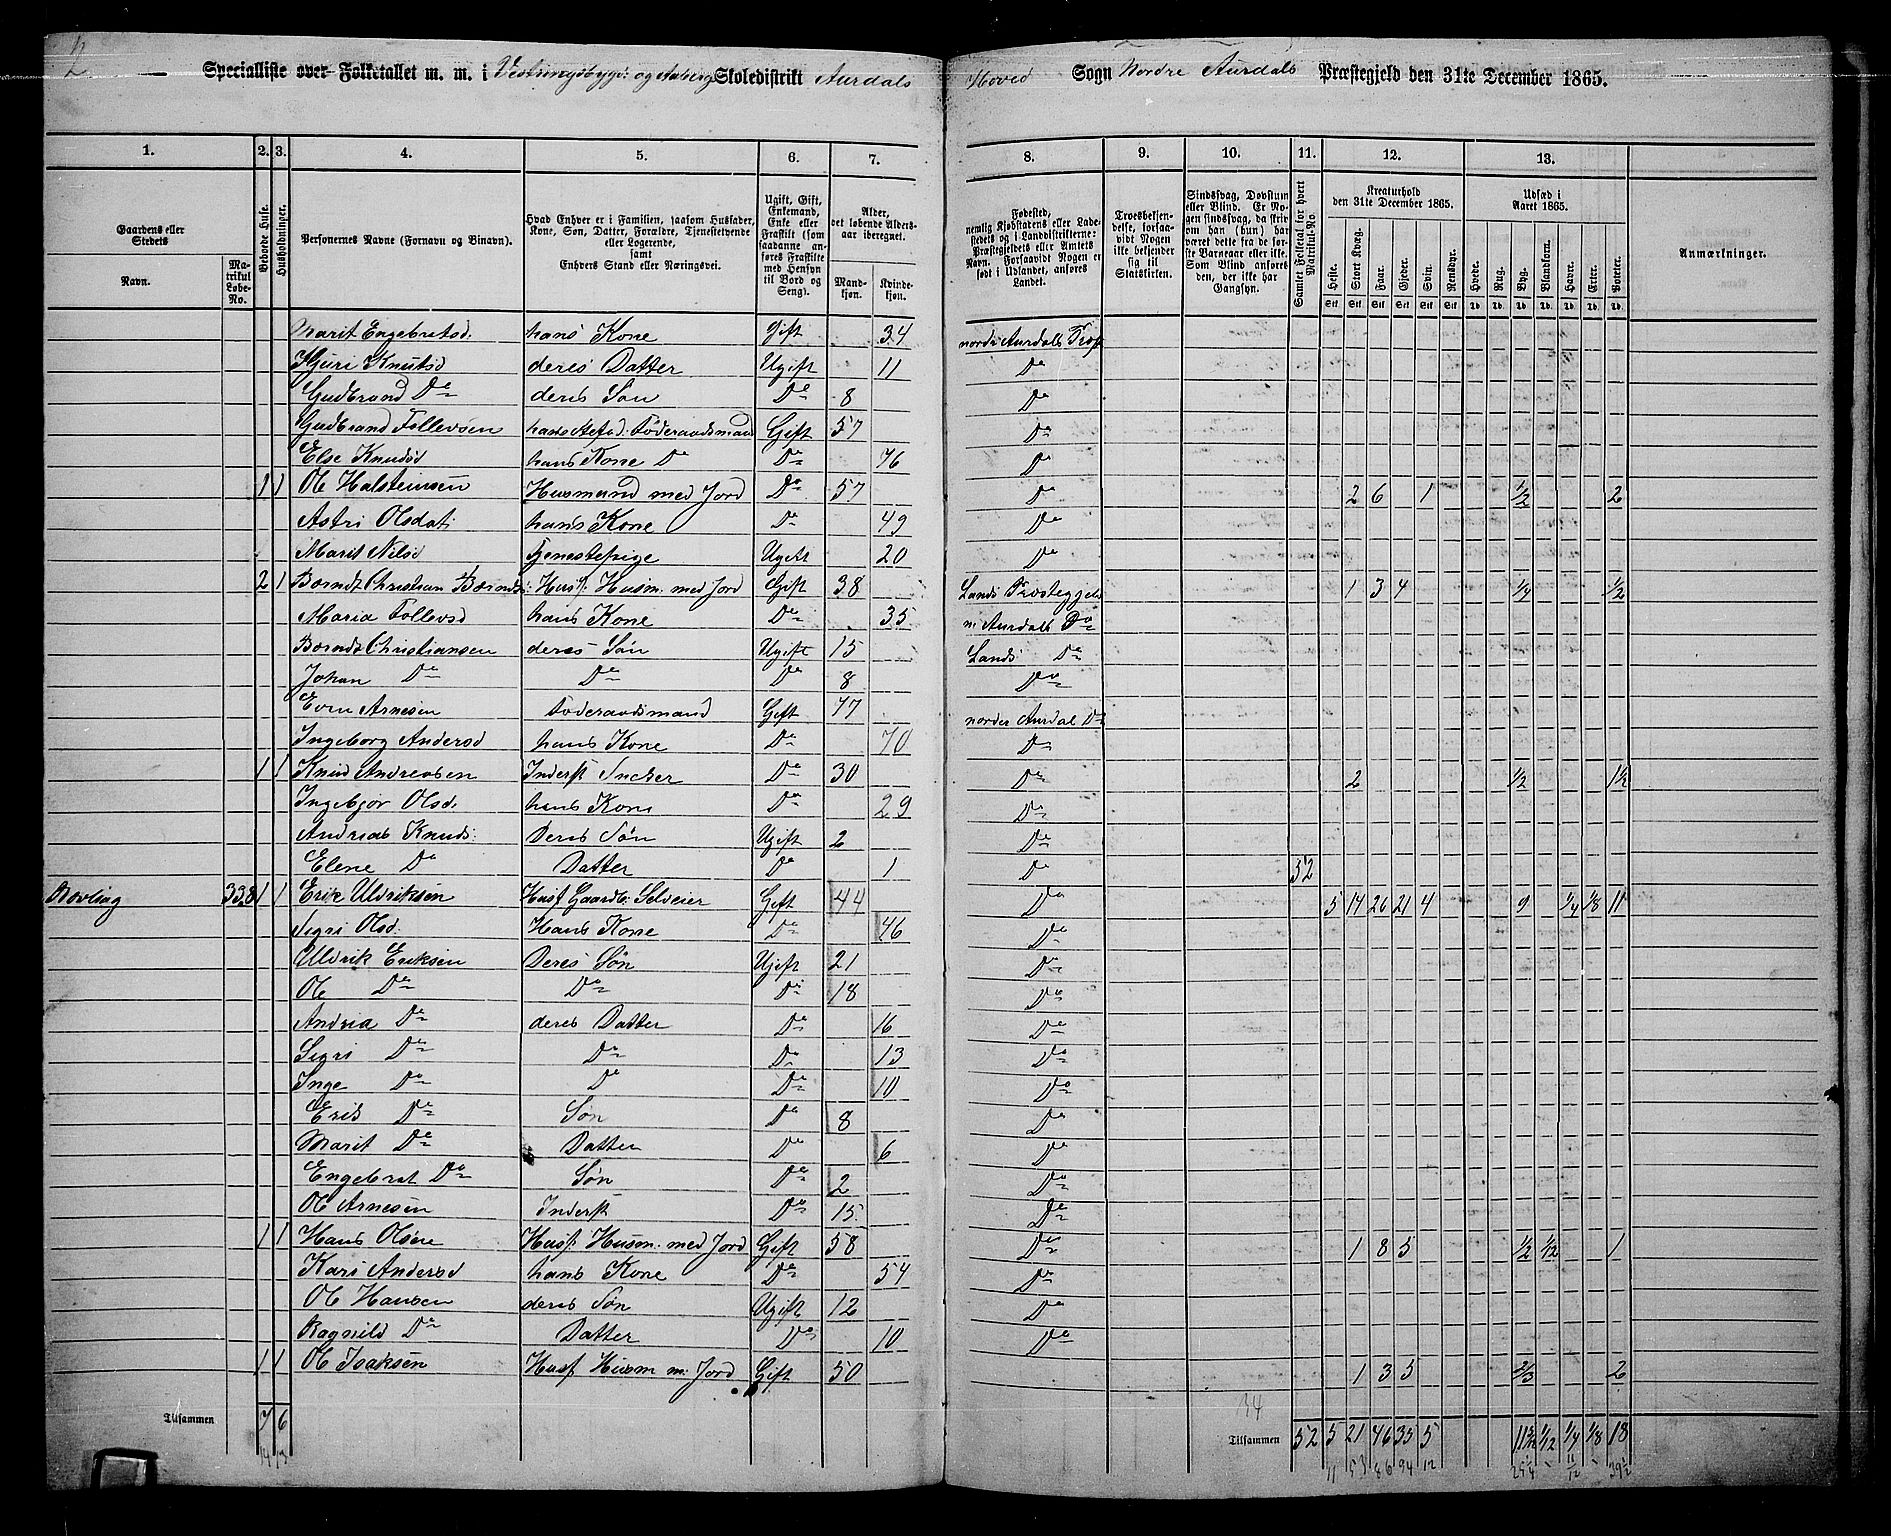 2
Specialliste over Folketallet m. m. i Vestringsbygd: og Aaberg Skoledistrikt Aurdals Hoved Sogn Nordre Aurdals Præstegjeld den 31te December 1865.
1. 2. 3. 4. 5. 6. 7. 8. 9. 10. 11. 12. 13.
Gaardens eller Stedets
Navn.
Matrikul Løbe-No.
Beboede Huse.
Husholdninger.
Personernes Navne (Fornavn og Binavn).
Hvad Enhver er i Familien, saasom Husfader, Kone, Søn, Datter, Forældre, Tjenestetyende eller Logerende, samt Enhvers Stand eller Næringsvei.
Ugift, Gift, Enkemand, Enke eller Fraskilt (som saadanne anføres Fraskilte med Hensyn til Bord og Seng).
Alder, det løbende Alders-aar iberegnet.
Mandkjøn.
Kvindekjøn.
Fødested, nemlig Kjøbstadens eller Ladestedets og i Landdistrikterne: Præstegjeldets eller Amtets Navn. Forsaavidt Nogen er født i Udlandet, anføres Landet.
Troesbekjendelse, forsaavidt Nogen ikke bekjender sig til Statskirken.
Sindssvag, Døvstum eller Blind. Er Nogen sindssvag, da skriv om han (hun) har været dette fra de første Barneaar eller ikke. Som Blind anføres den, der ikke har Gangsyn.
Samlet Folketal for hvert Matrikul-No.
Kreaturhold den 31te December 1865.
Heste. Stort Kvæg. Faar. Gjeder. Svin. Rensdyr.
Udsæd i Aaret 1865.
Hvede. Rug. Byg. Blandkorn. Havre. Erter. Poteter.
Anmærkninger.
Marit Engebretsd. hans Kone Gift 34 nordre Aurdals
Kjuri Knutsd deres Datter Ugift 11 Do
Gudbrand Do deres Søn Do 8 Do
Gudbrand Tollevsen Föderaadsmand Gift 57 Do
Else Knudsd hans Kone Do Do 76 Do
1 1 Ole Halsteinsen Husmand med Jord Do 57 Do 2 6 1 1/2 2
Astri Olsdat: hans Kone Do 49 Do
Marit Nilsd Tjenestepige Ugift 20 Do
2 1 Berndt Christian Berndts: Husf: Husm. med Jord Gift 38 Lands Præstegjeld 1 3 4 1/4 1/2
Maria Tollevsd hans Kone Do 35 n: Aurdals Do
Berndt Christiansen deres Søn Ugift 15 Lands Do
Johan Do Do Do 8 Do
Even Arnesen Föderaadsmand Gift 77 nordre Aurdal Do
Ingeborg Andersd hans Kone Do 70 Do
1 1 Knud Andreasen Inderst Sneker Do 30 Do 2 1/2 1 1/2
Ingebjør Olsd. hans Kone Do 29 Do
Andreas Knuds: Deres Søn Ugift 2 Do
Elene Do Datter Do 1 Do 52
338 1 1 Erik Uldriksen Husf Gaardb: Selveier Gift 44 Do 5 17 26 21 4 9 1/4 1/8 11
Sigri Olsd. Hans Kone Do 46 Do
Uldrik Eriksen Deres Søn Ugift 21 Do
Ole Do Do Do 18 Do
Andria Do deres Datter Do 16 Do
Sigri Do Do Do 13 Do
Inge Do Do Do 10 Do
Erik Do Søn Do 8 Do
Marit Do Datter Do 6 Do
Engebret Do Søn Do 2 Do
Ole Arnesen Inderst Do 15 Do
1 1 Hans Olsen Husf: Husm. med Jord Gift 58 Do 1 8 5 1/2 1/12 1
Kari Andersd hans Kone Do 54 Do
Ole Hansen deres Søn Ugift 12 Do
Ragnild Do Datter Do 10 Do
1 1 Ole Isaksen Husf Husm m: Jord Gift 50 1 3 5 2/3 2
34
Tilsammen 7 6 Tilsammen 52 5 21 46 35 5 1/12 1/4 1/8 18
14 13 11 53 86 94 12 39 1/2